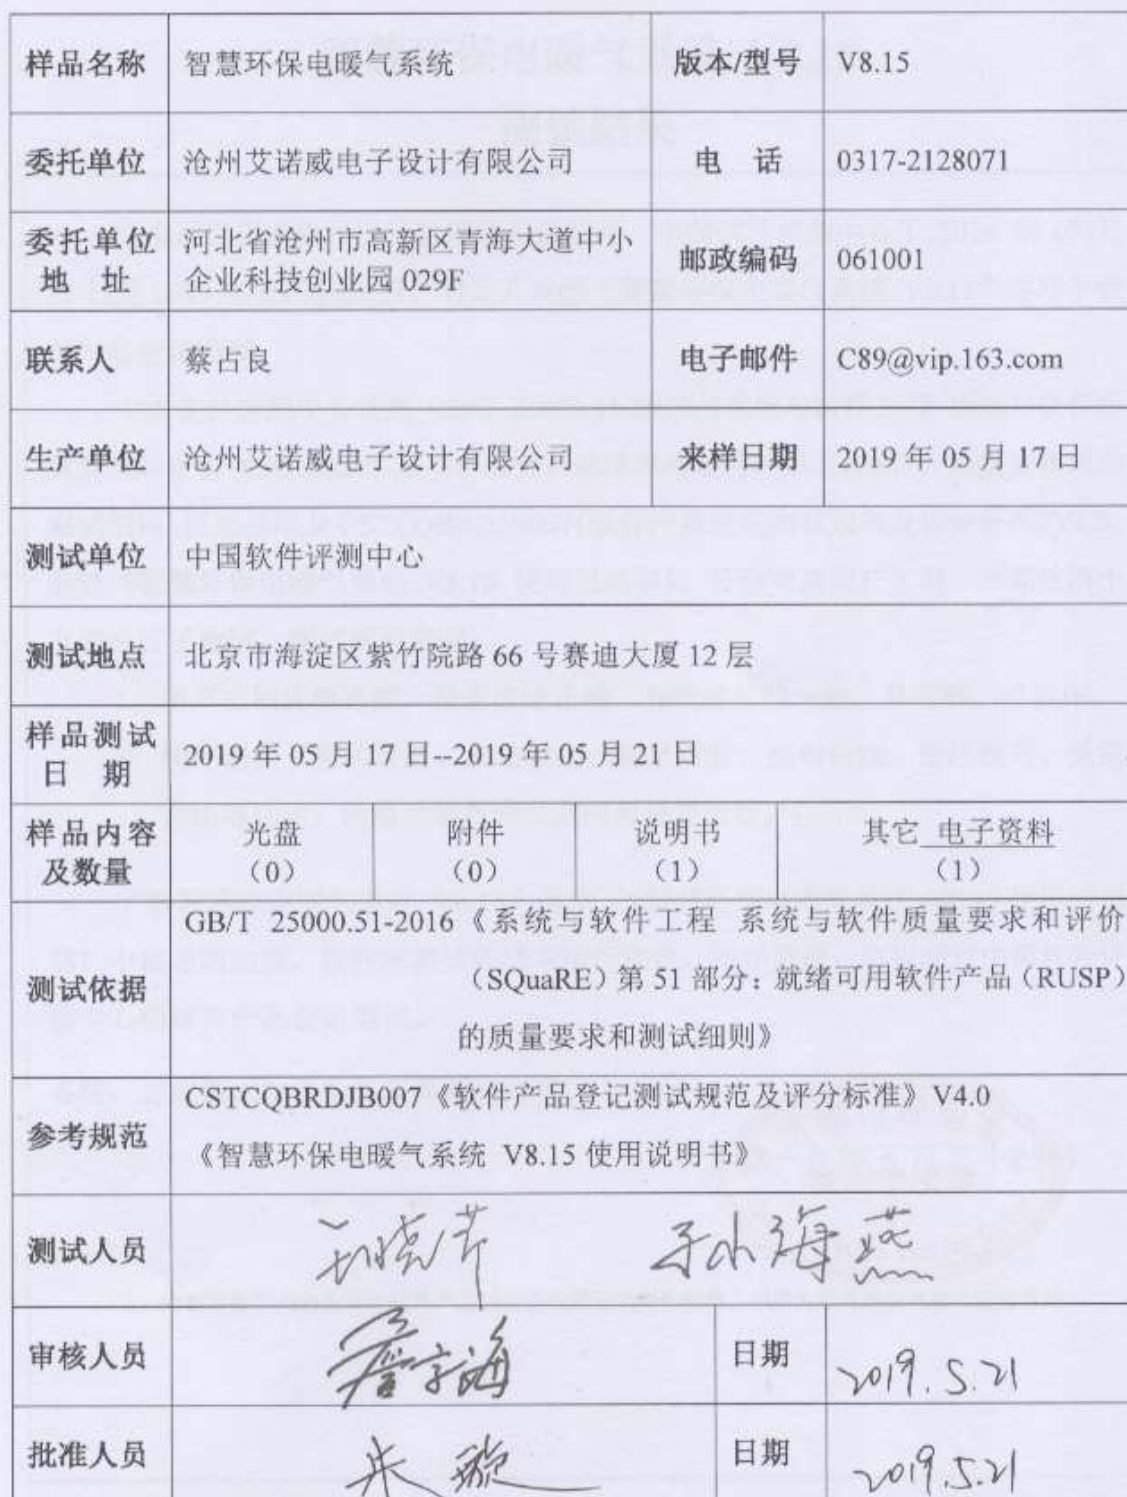 样品名称 智慧环保电暖气系统 版本/型号 V8.15
委托单位 沧州艾诺威电子设计有限公司 电 话 0317-2128071
委托单位 河北省沧州市高新区青海大道中小 邮政编码 061001
地 址 企业科技创业园 029F
联系人 蔡占良 电子邮件 C89@vip.163.com
生产单位 沧州艾诺威电子设计有限公司 来样日期 2019 年 05 月 17 日
测试单位 中国软件评测中心
测试地点 北京市海淀区紫竹院路 66 号赛迪大厦 12 层
样品测试 2019 年 05 月 17 日--2019 年 05 月 21 日
日 期
样品内容 光盘 附件 说明书 其它 电子资料
及数量 （0） （0） （1） （1）
GB/T 25000.51-2016《系统与软件工程 系统与软件质量要求和评价
测试依据 （SQuaRE）第 51 部分：就绪可用软件产品（RUSP）
的质量要求和测试细则》
CSTCQBRDJB007《软件产品登记测试规范及评分标准》V4.0
参考规范
《智慧环保电暖气系统 V8.15 使用说明书》
测试人员 孙海燕
审核人员 日期 2019.5.21
批准人员 日期 2019.5.21